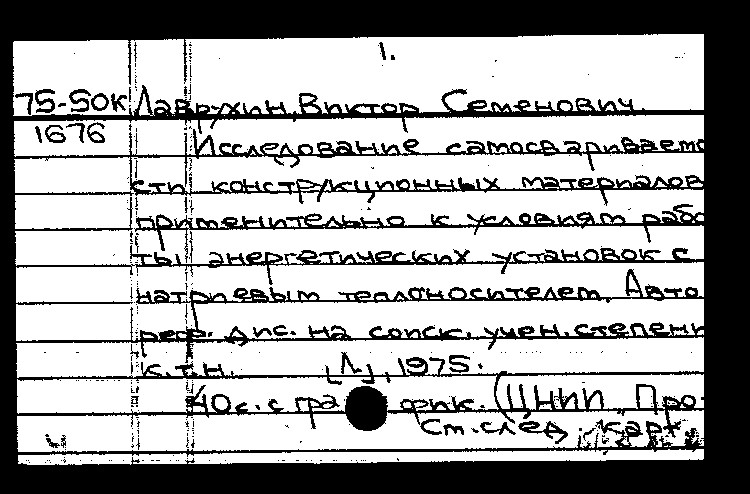 1.
75-50К Лаврухин, Виктор Семенович.
1676 Исследование самосвариваемо
сти конструкционных материалов
применительно к условиям рабо
ты энергетических установок с
натриевым теплоносителем. Авто
реф. дис. на соиск. учен. степени
к.т.н. [Л], 1975.
40 с. с гра фик. (ЦНИИ "Про-
См. след. карт